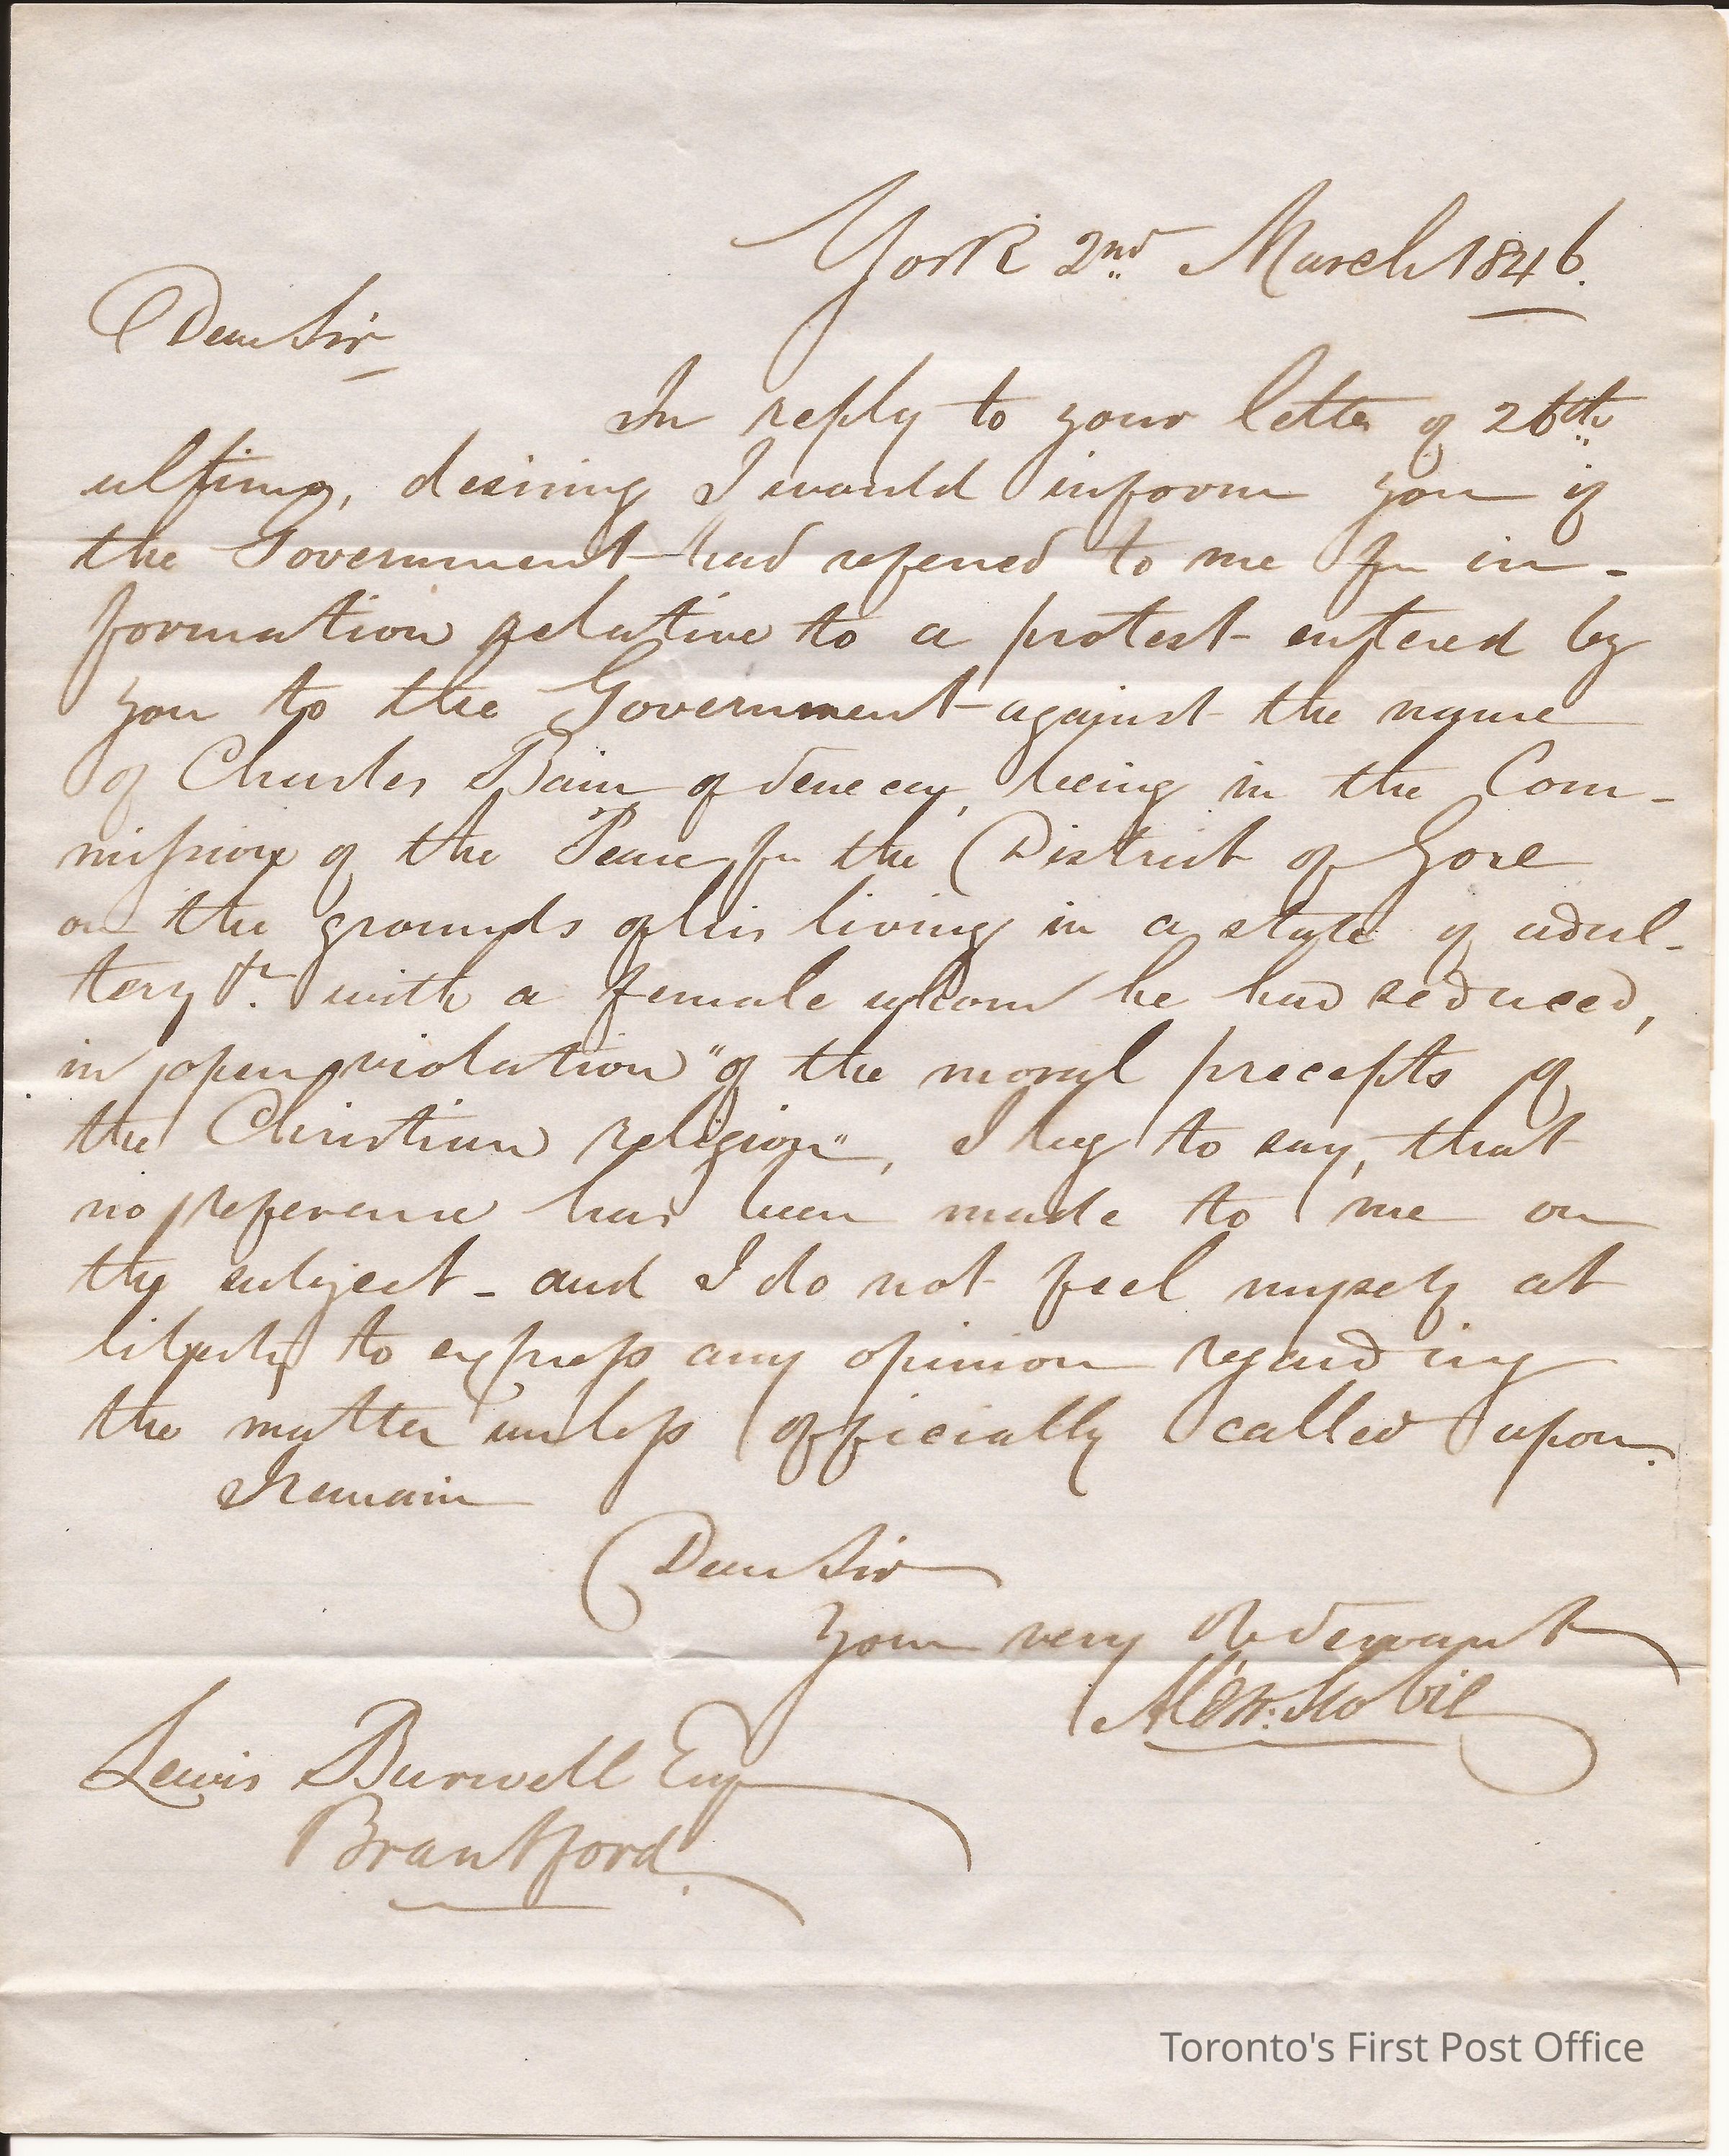 York 2nd March 1846.
Dear Sir
In reply to your letter of 26th
ultimo, desiring I would inform you if
the Government had referred to me for in-
formation relative to a protest entered by
you to the Government against the name
of Charles Bain of Seneca, being in the Com-
mission of the Peace for the District of Gore
on the grounds of his living in a state of adul-
tery &c. with a female whom he had seduced,
in open violation "of the moral precepts of
the Christian religion", I beg to say, that
no reference has been made to me on
the subject - and I do not feel myself at
liberty to express any opinion regarding
the matter unless officially called upon.
I remain
Dear Sir
Your very Ob Servant
Lewis Burwell Esq
Brantford.
Toronto's First Post Office